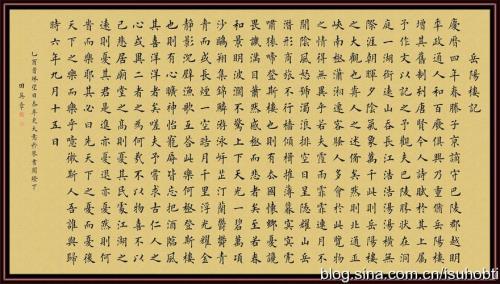 岳陽樓記
慶曆四年春滕子京謫守巴陵郡越明
年政通人和百廢俱興乃重修岳陽樓
增其舊制刻唐賢今人詩賦於其上屬
予作文以記之予觀夫巴陵勝狀在洞
庭一湖銜遠山吞長江浩浩湯湯橫無
際涯朝暉夕陰氣象萬千此則岳陽樓
之大觀也前人之述備矣然則北通巫
峽南極瀟湘遷客騷人多會於此覽物
之情得無異乎若夫霪雨霏霏連月不
開陰風怒號濁浪排空日星隱耀山岳
潛形商旅不行檣傾楫摧薄暮冥冥虎
嘯猿啼登斯樓也則有去國懷鄉憂讒
畏譏滿目蕭然感極而悲者矣至若春
和景明波瀾不驚上下天光一碧萬頃
沙鷗翔集錦鱗游泳岸芷汀蘭鬱鬱青
青而或長煙一空皓月千里浮光耀金
靜影沉璧漁歌互答此樂何極登斯樓
也則有心曠神怡寵辱皆忘把酒臨風
其喜洋洋者矣嗟夫予嘗求古仁人之
心或異二者之為何哉不以物喜不以
己悲居廟堂之高則憂其民處江湖之
遠則憂其君是進亦憂退亦憂然則何
時而樂耶其必曰先天下之憂而憂後
天下之樂而樂乎噫微斯人吾誰與歸
時六年九月十五日
田英章
blog.sina.com.cn/isuhobti